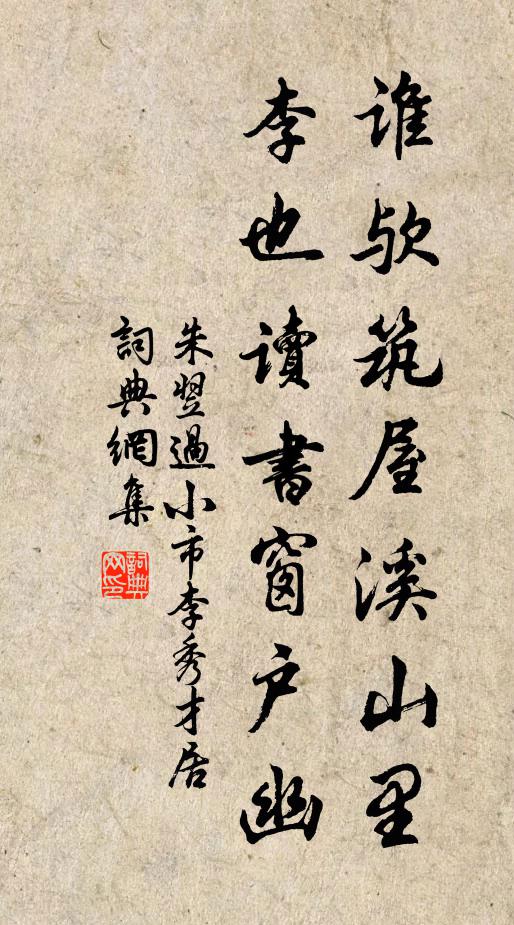 谁欤筑屋溪山里
李也讀書窗户幽
朱翌過小市李秀才居
詞典網集
詞典网印